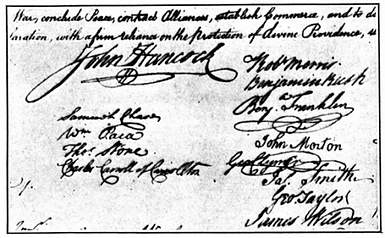 War, conclude Peace, contract Alliances, establish Commerce, and to d
laration, with a firm reliance on the protection of divine Providence, w
John Hancock
Robt Morris
Benjamin Rush
Benj. Franklin
Samuel Chase
Wm Paca
Thos. Stone
Charles Carroll of Carrollton
John Morton
Geo Clymer
Jas. Smith
Geo Taylor
James Wilson